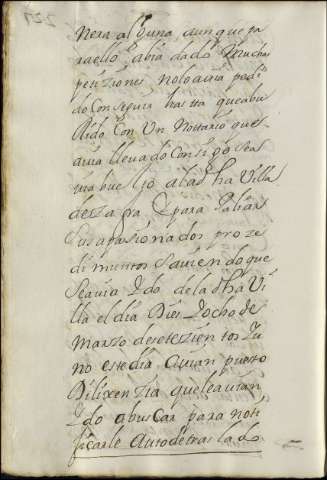 nera alguna aunque pa
raello abia dado Muchas
petiziones noloauia podi
do Conseguir hastta queabu
Rido Con Un Nottario que
auia lleuado Consigo sea
uia buelto a la dha Villa
desa para
sus apasionados proze
dimientos Sauiendo que
seauia Ydo de la dha Vi
lla el dia Diez Y ocho de
Marzo desetezientos Y u
no estedia auian puesto
Dilixenzia queleauian
Ydo abuscar para noti
ficarle Auto de tras lado